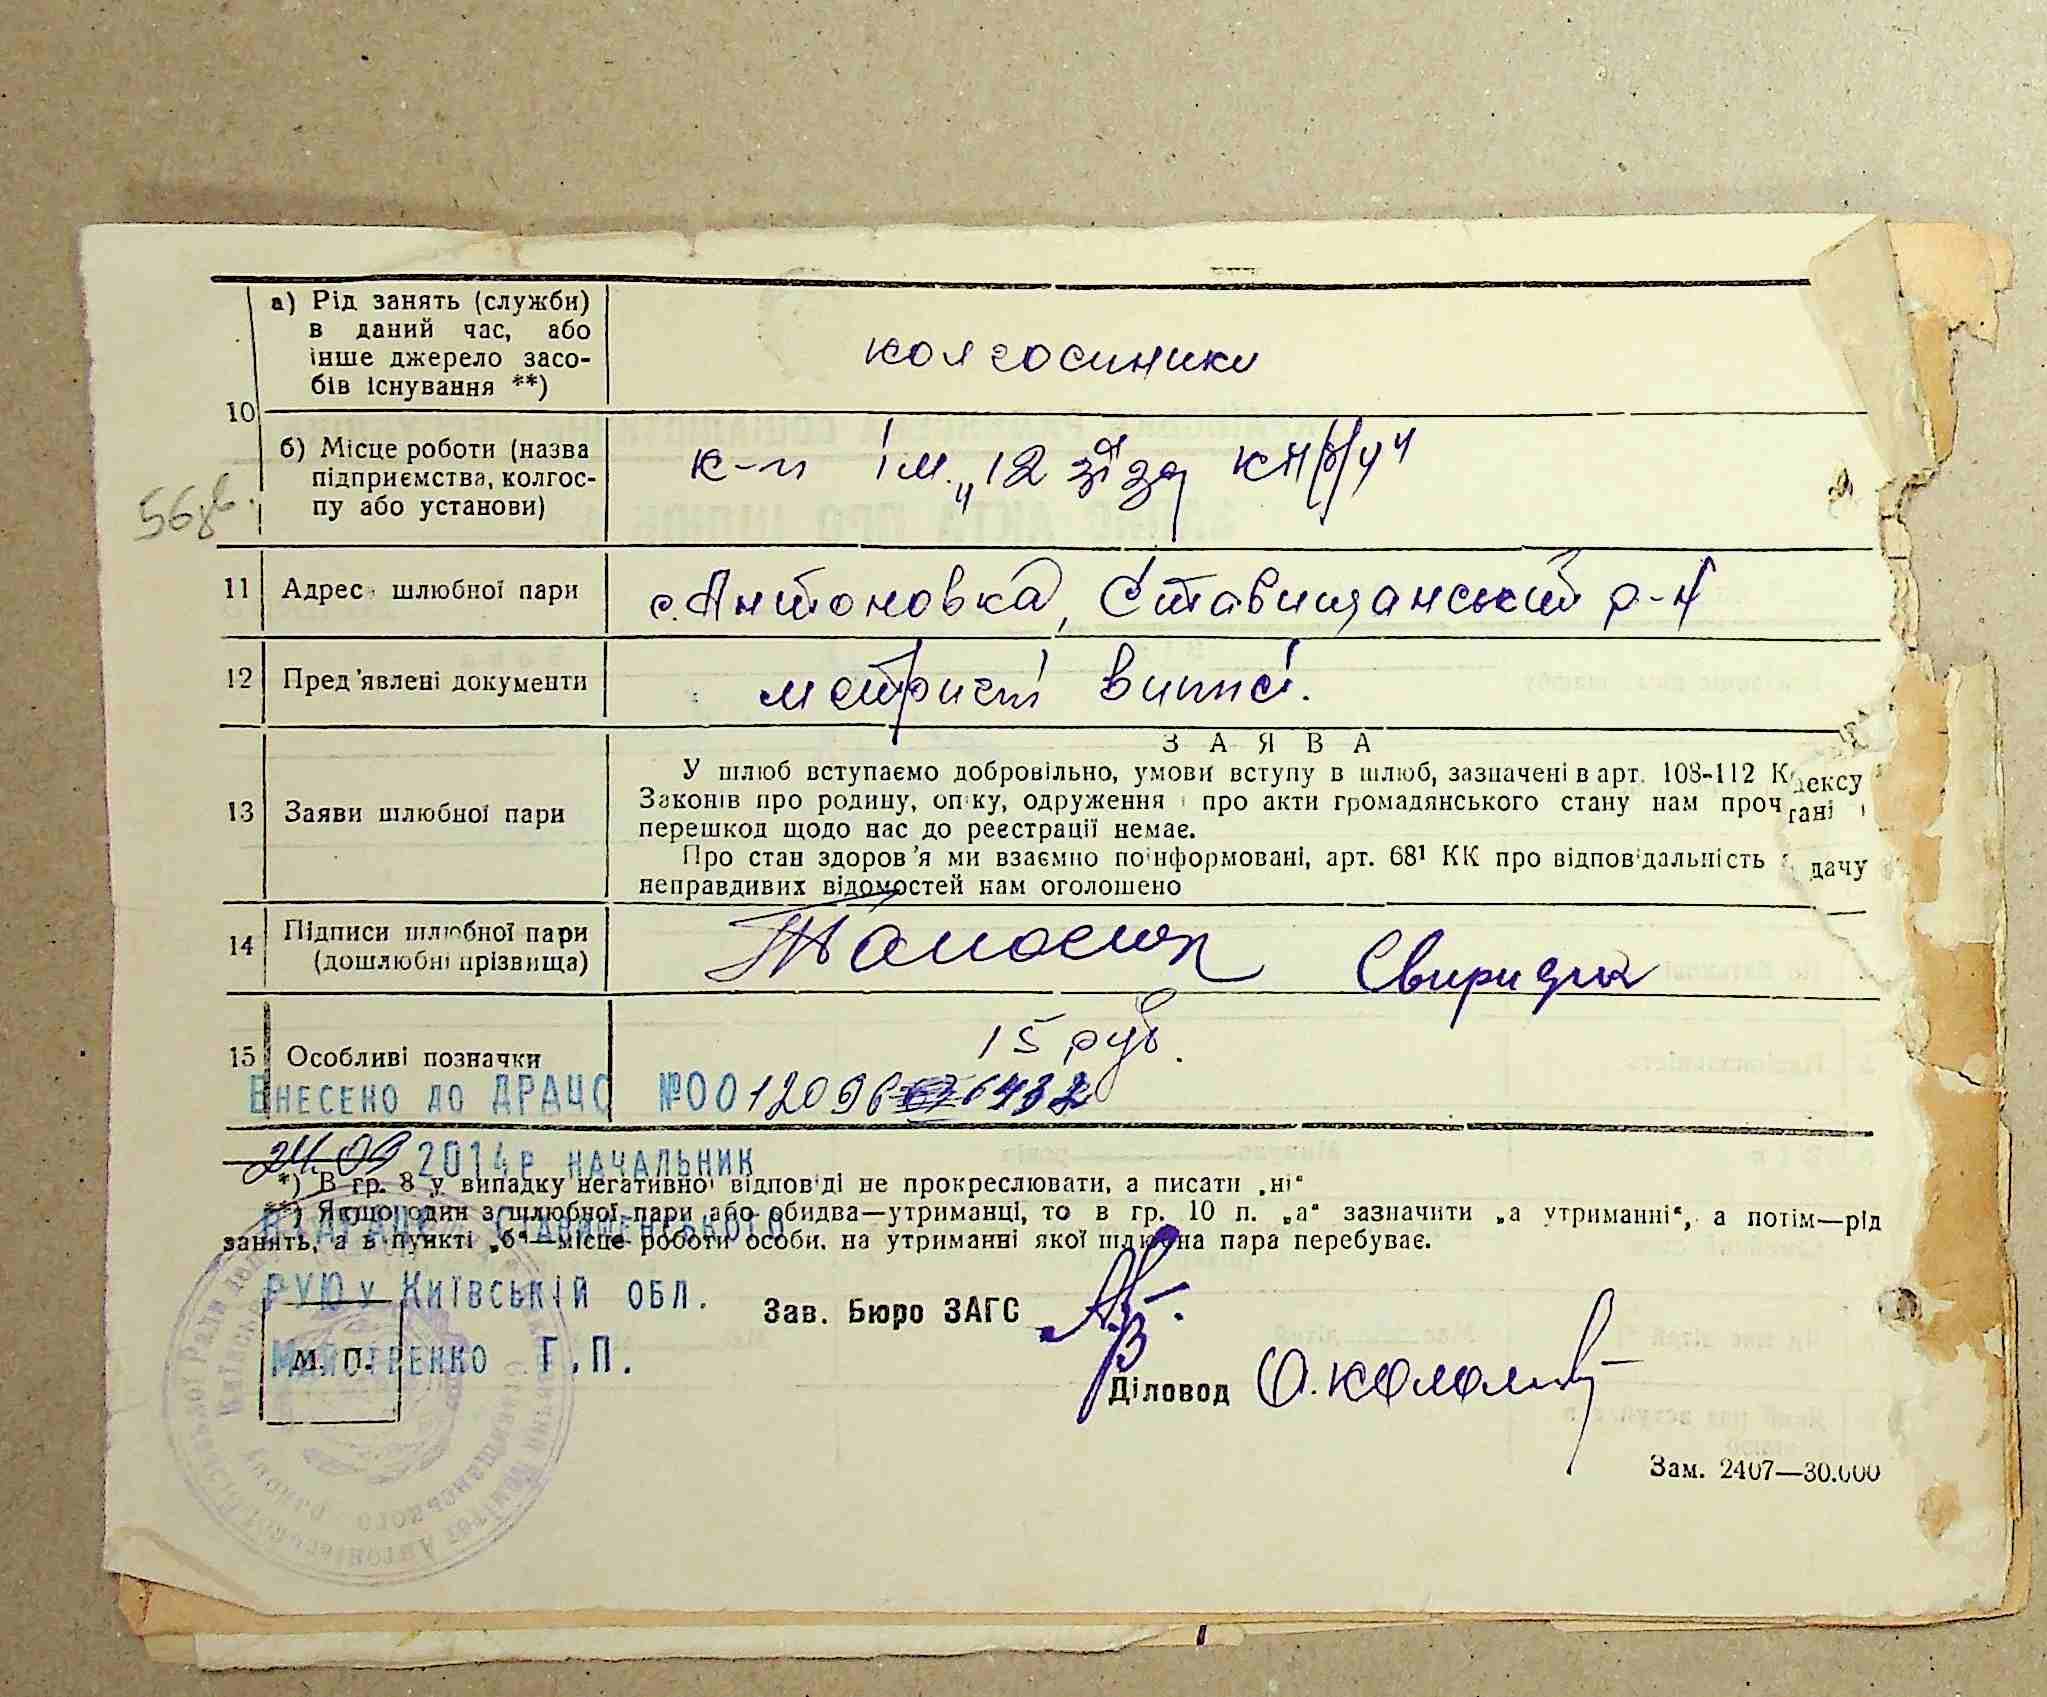 а) Рід занять (служби)
в даний час, або
інше джерело засо-
бів існування **)
колгоспники
10
б) Місце роботи (назва
підприємства, колгос-
пу або установи)
к-п ім. „12 зїзд КП(б)У"
56
11 Адрес шлюбної пари
с. Антоновка, Ставищанський р-н
12 Пред'явлені документи
метричні виписі.
13 Заяви шлюбної пари
ЗАЯВА
У шлюб вступаємо добровільно, умови вступу в шлюб, зазначені в арт. 108-112 Кодексу
Законів про родину, опіку, одруження і про акти громадянського стану нам прочитані і
перешкод щодо нас до реєстрації немає.
Про стан здоров'я ми взаємно поінформовані, арт. 68¹ КК про відповідальність дачу
неправдивих відомостей нам оголошено
14 Підписи шлюбної пари
(дошлюбні прізвища)
Свиридюк
15 Особливі позначки
15 руб.
Внесено до ДРАЦС №0012096 6432
24.09 2014р НАЧАЛЬНИК
*) В гр. 8 у випадку негативної відповіді не прокреслювати, а писати „ні"
**) Якщо один з шлюбної пари або обидва—утриманці, то в гр. 10 п. „а" зазначити „а утриманні", а потім—рід
СТАВИЩЕНСЬКОГО
занять, а в пункті „б"—місце роботи особи, на утриманні якої шлюбна пара перебуває.
РУЮ у Київській обл.
Зав. Бюро ЗАГС
М. П.
Г.П.
Діловод
Зам. 2407—30.000